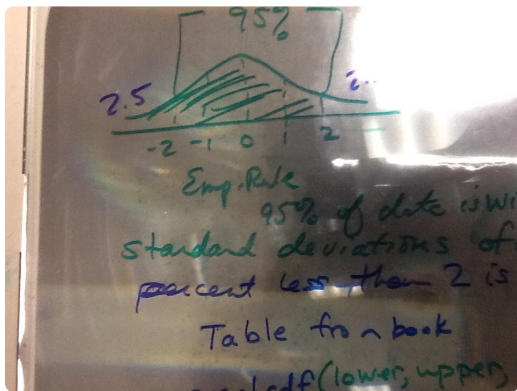 95%
2.5
-2 -1 0 1 2
Emp. Rule
95% of data is wi
standard deviations of
percent less than 2 is
Table from book
cdf(lower, upper,